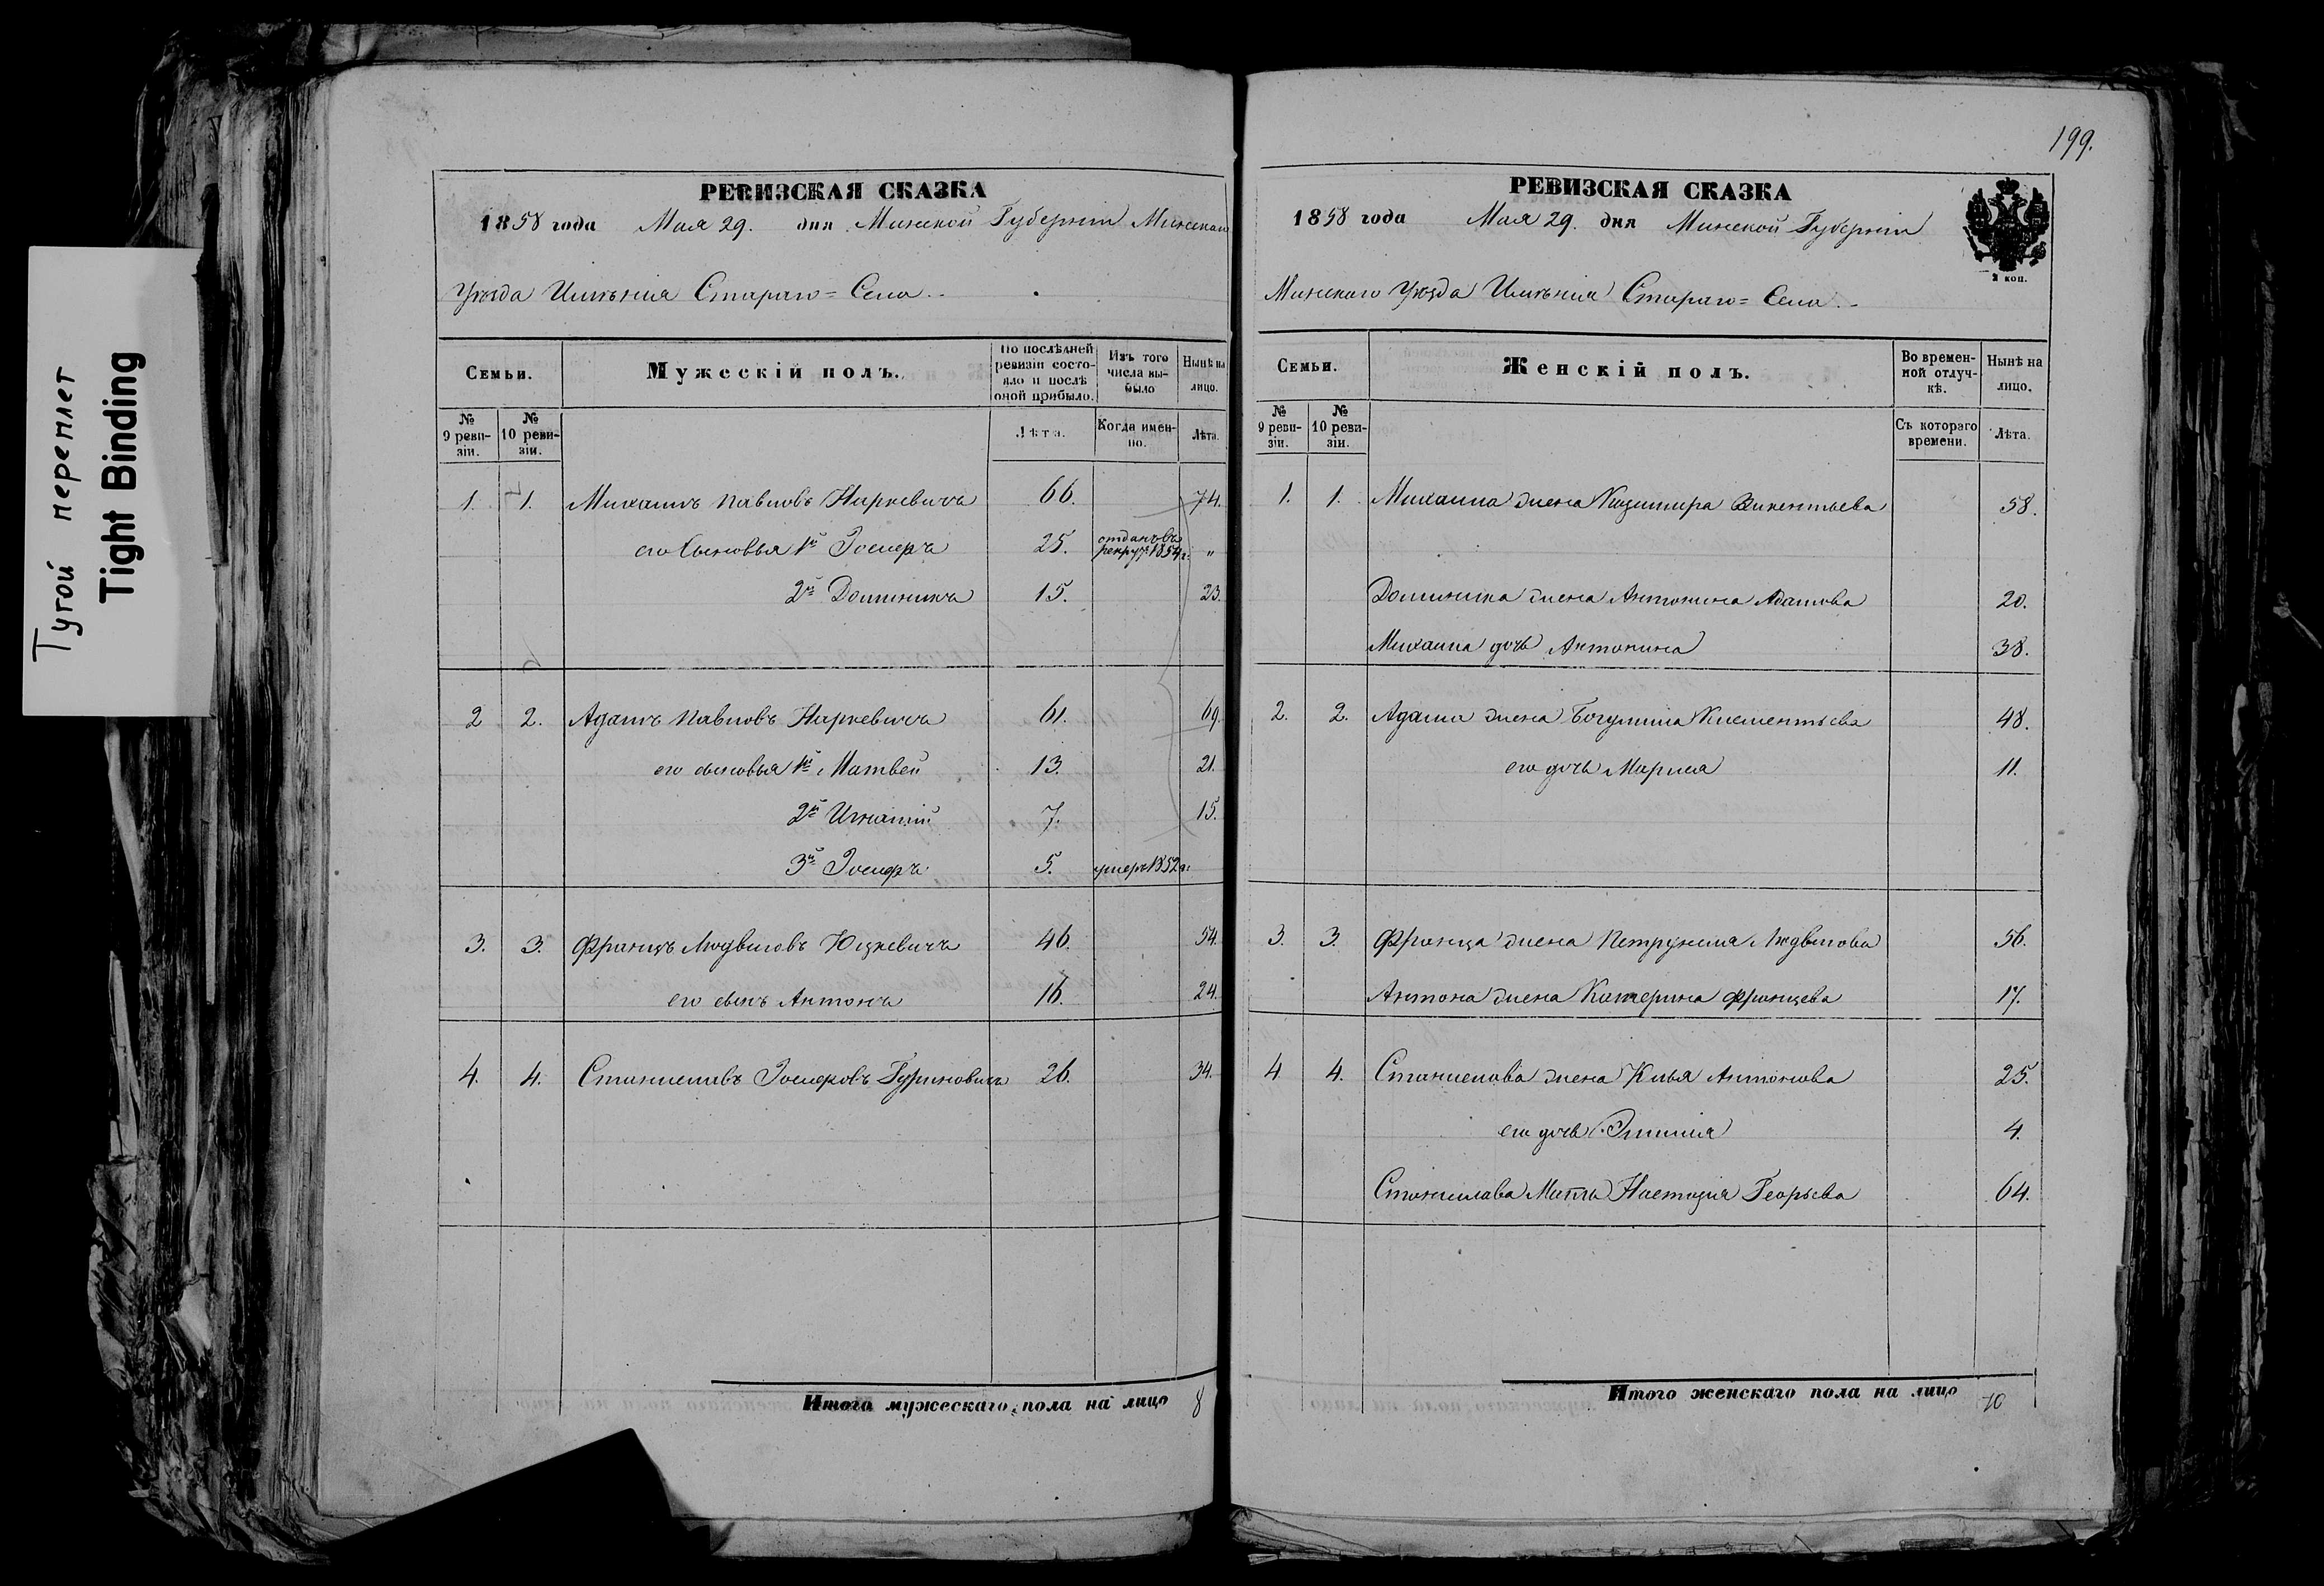 Тугой переплет
Tight Binding
РЕВИЗСКАЯ СКАЗКА
1858 года Мая 29. дня Минской Губерніи Минскаго
Уѣзда Имѣнія Стараго=Села.
Семьи.
Мужескій полъ.
По послѣдней ревизіи состояло и послѣ оной прибыло.
Изъ того числа выбыло
Нынѣ на лицо.
№ 9 ревизіи.
№ 10 ревизіи.
Лѣта.
Когда именно.
Лѣта.
1. 1. Михаилъ Павловъ Наркевичъ 66. 74.
его сыновья 1й Іосифъ 25. отданъ въ рекруты 1854 г. „
2й Доминикъ 15. 23.
2 2. Адамъ Павловъ Наркевичъ 61. 69
его сыновья 1й Матвей 13. 21.
2й Игнатій 7. 15.
3й Іосифъ 5. умеръ 1852 г.
3. 3. Францъ Людвиговъ Юцкевичъ 46. 54.
его сынъ Антонъ 16. 24.
4. 4. Станиславъ Іосифовъ Гуриновичъ 26. 34.
Итого мужескаго пола на лицо 8
199.
РЕВИЗСКАЯ СКАЗКА
1858 года Мая 29. дня Минской Губерніи
2 коп.
Минскаго Уѣзда Имѣнія Стараго=Села.
Семьи.
Женскій полъ.
Во временной отлучкѣ.
Нынѣ на лицо.
№ 9 ревизіи.
№ 10 ревизіи.
Съ котораго времени.
Лѣта.
1. 1. Михаила жена Казимира Викентьева 58.
Доминика жена Антонина Адамова 20.
Михаила дочь Антонина 38.
2. 2. Адама жена Богумила Клементьева 48.
его дочь Марыя 11.
3. 3. Франца жена Петрунеля Людвигова 56.
Антона жена Катерина Францева 17.
4 4. Станислава жена Юлья Антонова 25.
его дочь Эмилия 4.
Станислава Мать Настазія Георьева 64.
Итого женскаго пола на лицо 10